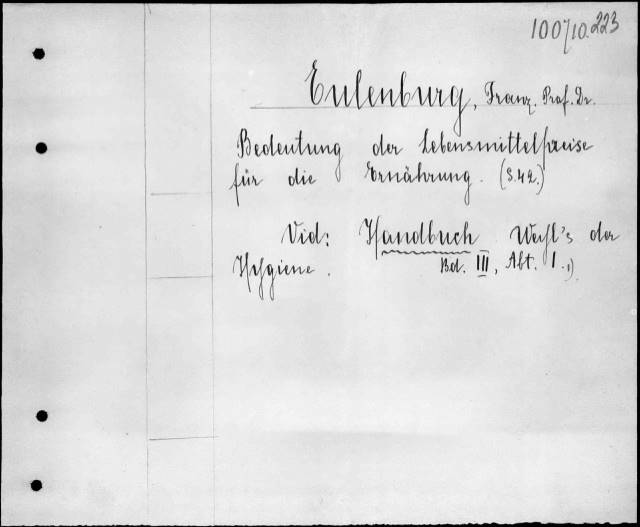 100710.223
Eulenburg, Franz. Prof. Dr.
Bedeutung der Lebensmittelpreise
für die Ernährung. (S.42.)
Vid: Handbuch Weyl's der
Hygiene. Bd. III, Abt. 1.